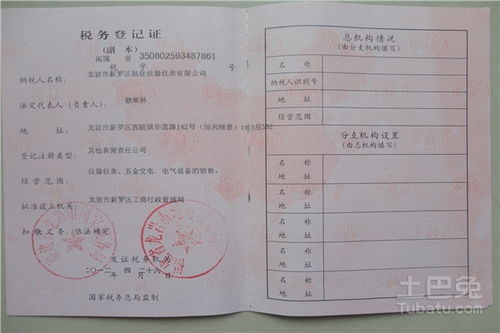 税务登记证
(副本)
闽国 登 350802593487861
税 字 号
纳税人名称: 龙岩市新罗区航佳仪器仪表有限公司
法定代表人(负责人): 赖荣林
地 址: 龙岩市新罗区西陂镇华莲路142号(恒兴绿景)1栋5层502
登记注册类型: 其他有限责任公司
经营范围: 仪器仪表、五金交电、电气设备的销售。
批准设立机关: 龙岩市新罗区工商行政管理局
扣缴义务: 依法确定
发证税务机关
二〇一二 年 四 月 二十六
国家税务总局监制
总机构情况
(由分支机构填写)
名 称
纳税人识别号
地 址
经营范围
分支机构设置
(由总机构填写)
名 称
地 址
名 称
地 址
名 称
地 址
名 称
地 址
名 称
地 址
土巴兔
Tubatu.com